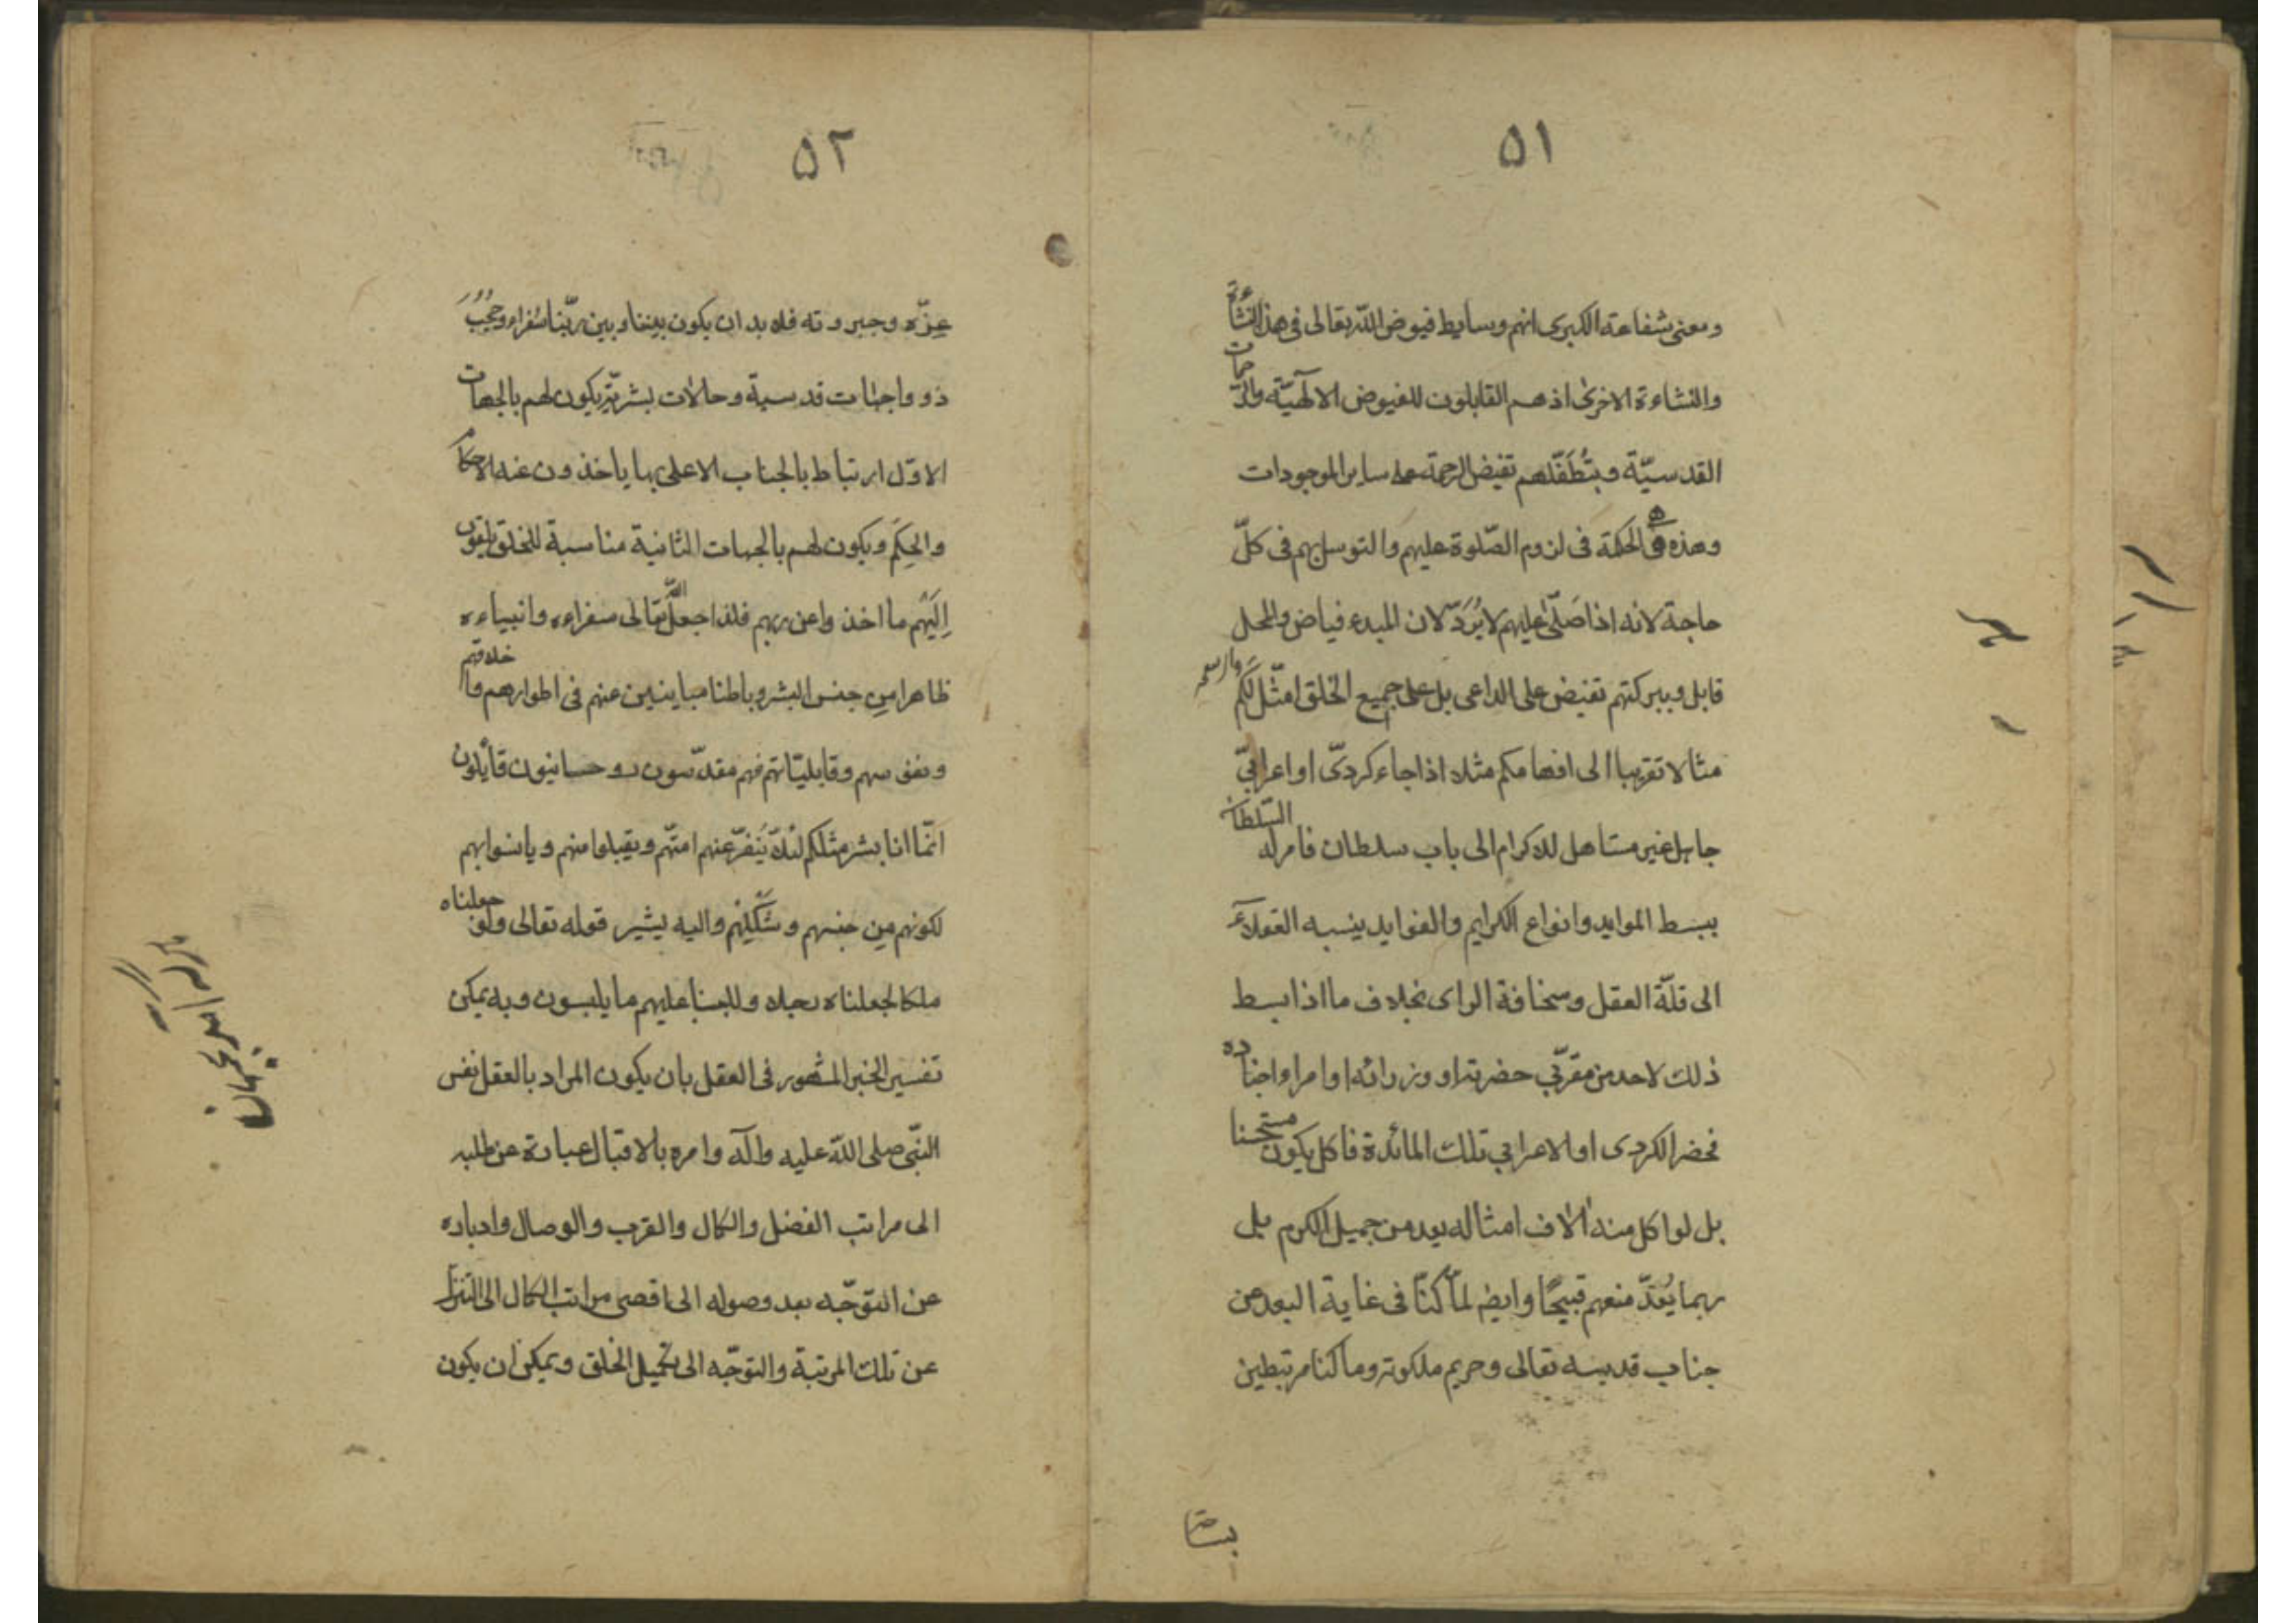 ٥١
ومعنى شفاعته الكبرى انهم وسايط فيوض الله تعالى فى هذ النشاءة
والنشاءة الاخرى اذ هم القابلون للفيوض الالٓهيّة والرّحمات
القدسيّة وبتُطَفّلهم تفيض الرحمة على ساير الموجودات
وهذه هى الحكمة فى لزوم الصّلوة عليهم والتوسل بهم فى كلّ
حاجة لانه اذا صَلّى عليهم لا يُرَدّ لان المبدء فياض والمحل
قابل وببركتهم تفيض على الداعى بل على جميع الخلق امثّل لكم
مثالا تقريبا الى افهامكم مثلا اذا جاء كردىّ او اعرابىّ
جاهل غير مستاهل للاكرام الى باب سلطان فامر له السّلطان
ببسط الموايد وانواع الكرايم والفوايد ينسبه العقلآء
الى قلّة العقل وسخافة الراى بخلاف ما اذا بسط
ذلك لاحد من مقرّبى حضرته او وزرائه او امرا واجناده
فحضر الكردى او الاعرابى تلك المائدة فاكل يكون مستحسنا
بل لو اكل منه الاف امثاله يعد من جميل الكرم بل
ربما يُعَدّ منعهم قبيحًا وايضم لمّا كنّا فى غاية البعد عن
جناب قدسه تعالى وحريم ملكوته وما كنا مرتبطين
بساحة
٥٢
عِزّه وجبروته فلا بد ان يكون بيننا وبين ربّنا سُفراء وحُجُبُ
ذوو اجهات قدسية وحالات بشريّة يكون لهم بالجهات
الاوّل ارتباط بالجناب الاعلى بها ياخذون عنه الاحكام
والحِكَم ويكون لهم بالجهات الثانية مناسبة للخلق يلقون
اِلَيْهِم ما اخذوا عن ربهم فلذا جعل الله تعالى سفراءه وانبياءه
ظاهرا من جنس البشر وباطنا مباينين عنهم فى اطوارهم واخلاقهم
ونفوسهم وقابليّاتهم فهم مقدّسون روحانيون قائلون
انّما انا بشر مثلكم لئلّا يَنْفَرّ عنهم امّتهم ويقبلوا منهم ويانسوا بهم
لكونهم مِن جنسهم وشَكْلِهْم واليه يشير قوله تعالى ولو جعلناه
ملكا لجعلناه رجلا وللبسنا عليهم ما يلبسون وبه يمكن
تفسير الخبر المشهور فى العقل بان يكون المراد بالعقل نفس
النّبى صلى الله عليه وآله وامره بالاقبال عبارة عن طلبه
الى مراتب الفضل والكمال والقرب والوصال وادباره
عن التوجّه بعد وصوله الى اقصى مراتب الكمال الى التنزل
عن تلك المرتبة والتوجّه الى تكميل الخلق ويمكن ان يكون